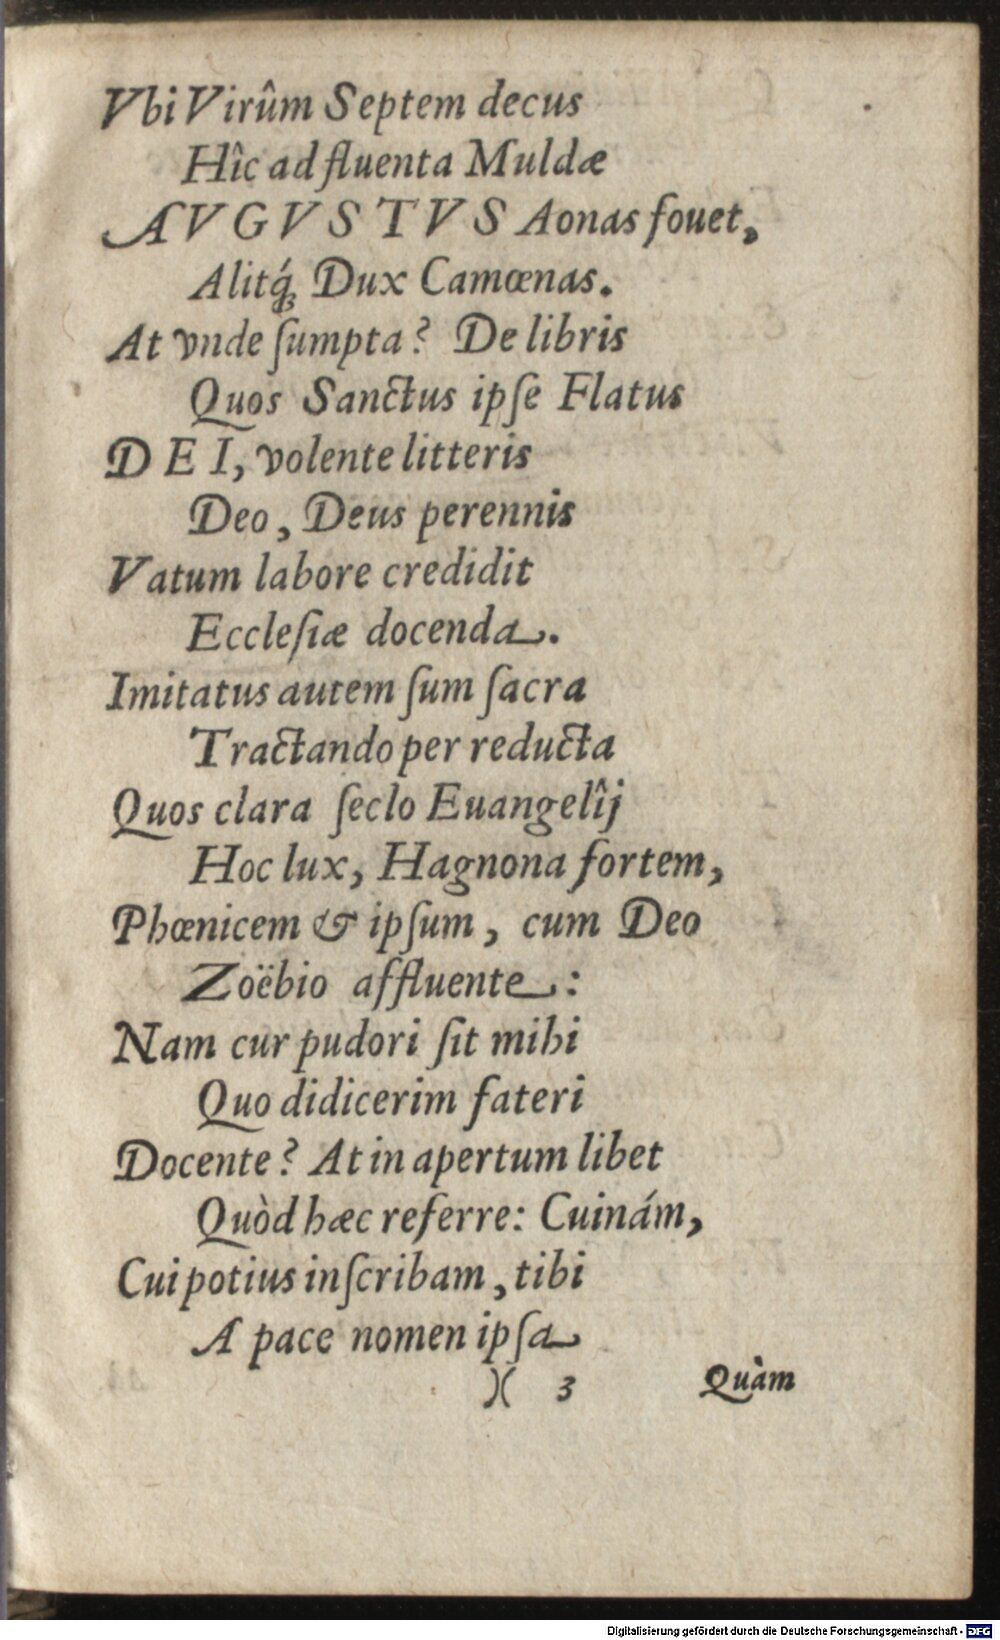 Vbi Virûm Septem decus
Hîc ad fluenta Muldæ
AVGVSTVS Aonas fouet,
Alitq́ꝫ Dux Camœnas.
At vnde ſumpta? De libris
Quos Sanctus ipſe Flatus
DEI, volente litteris
Deo, Deus perennis
Vatum labore credidit
Eccleſiæ docenda.
Imitatus autem ſum ſacra
Tractando per reducta
Quos clara ſeclo Euangelîj
Hoc lux, Hagnona fortem,
Phœnicem & ipſum, cum Deo
Zoëbio affluente:
Nam cur pudori ſit mihi
Quo didicerim fateri
Docente? At in apertum libet
Quòd hæc referre: Cuinám,
Cui potius inſcribam, tibi
A pace nomen ipſa
)( 3 Quàm
Digitalisierung gefördert durch die Deutsche Forschungsgemeinschaft - DFG